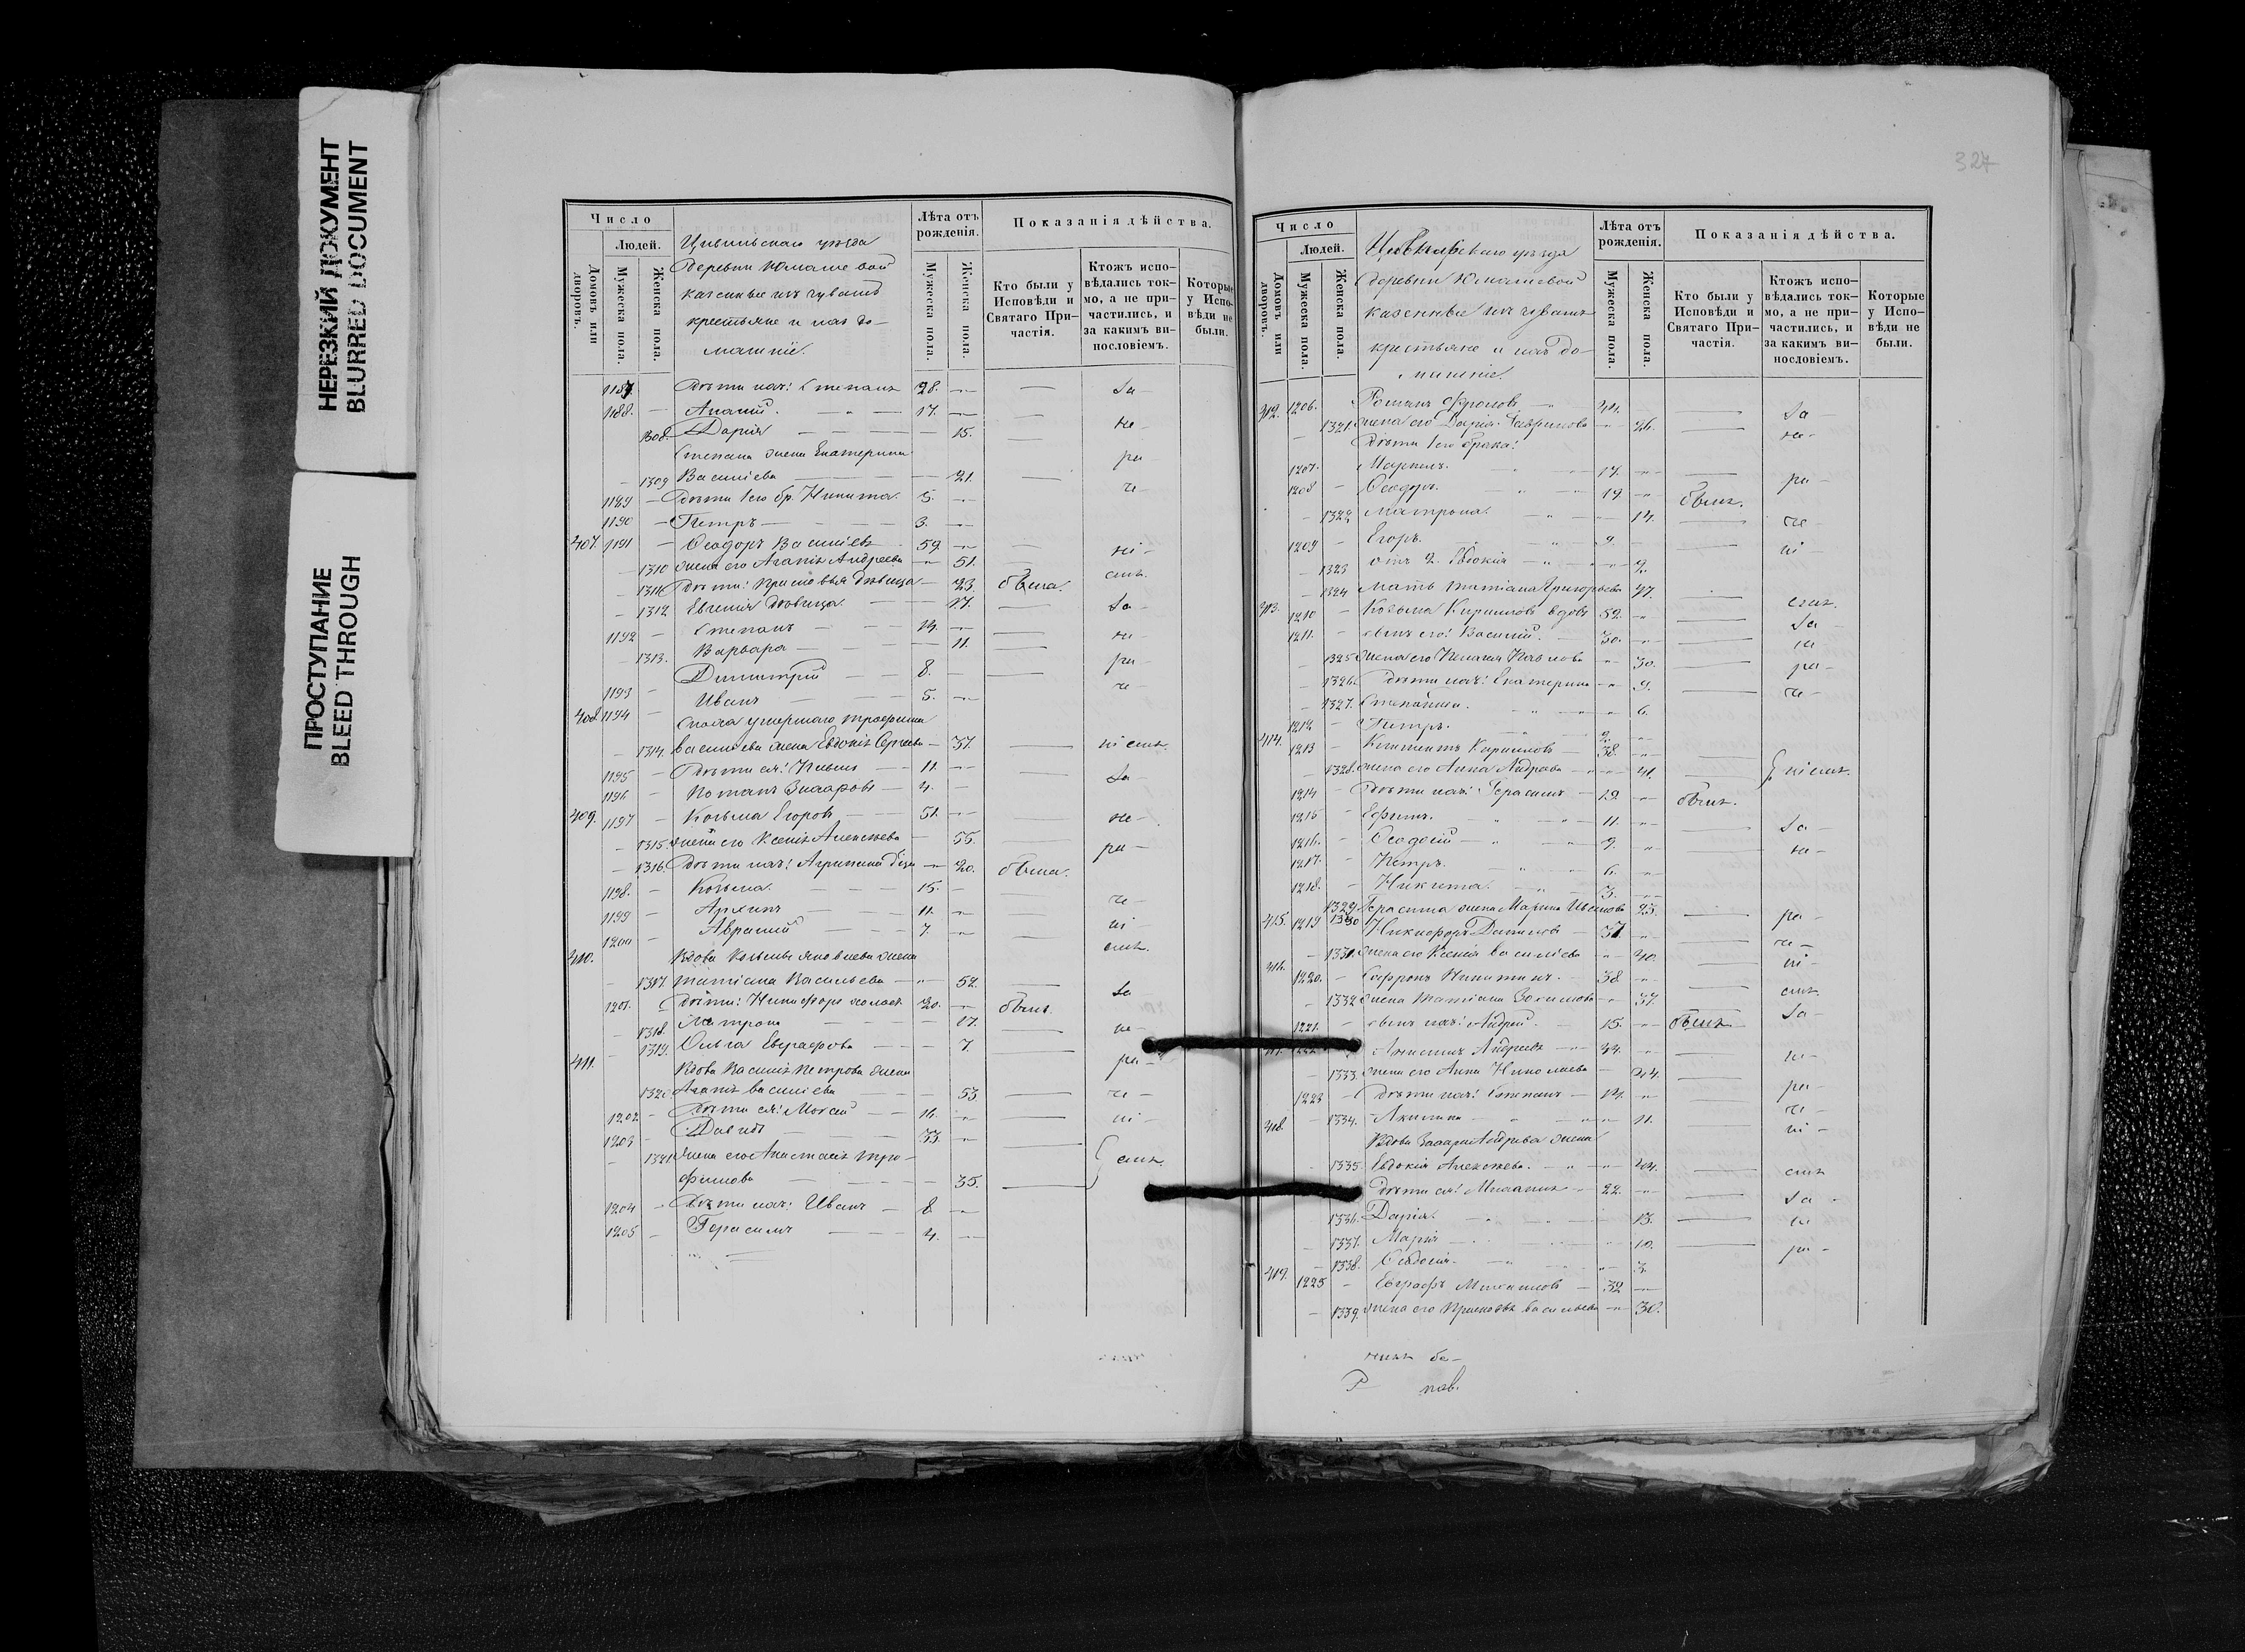 НЕРЕЗКИЙ ДОКУМЕНТ
BLURRED DOCUMENT
ПРОСТУПАНИЕ
BLEED THROUGH
Число
Людей.
Домовъ или дворовъ.
Мужеска пола.
Женска пола.
Цивильскаго уѣзда
деревни Юмашевой
казенные изъ чувашъ
крестьяне и ихъ до-
машніе.
Лѣта отъ рожденія.
Мужеска пола.
Женска пола.
Показанія дѣйства.
Кто были у Исповѣди и Святаго При-частія.
Ктожъ испо-вѣдались ток-мо, а не при-частились, и за какимъ ви-нословіемъ.
Которые у Испо-вѣди не были.
1187. Дѣти ихъ: Степанъ 28. За-
1188. Ананій. 17.
1308. Дарія 15. не-
Степана жена Екатерина ра-
1309 Василіева 21. че-
1189 Дѣти 1го бр. Никита. 5.
1190 Петръ 3.
407. 1191 Ѳеодоръ Василіевъ 59. ні-
1310 жена его Агапія Андреева 51. емъ.
1311 Дѣти: Прасковья дѣвица 23. была.
1312 Евгенія дѣвица 17. За-
1192 Степанъ 14. не-
1313. Варвара 11.
Димитрій 8. ра-
1193 Иванъ 5. че-
408. 1194
Сноха умершаго Трофима
1314. Василіева жена Евдокія Сергѣева 37. ніемъ.
1195 Дѣти ея: 11. За-
1196 Потапъ Захаровъ 4.
409. 1197 Козьма Егоровъ 51. не-
1315. жена его Ксенія Алексѣева 55. ра-
1316. Дѣти ихъ: Агрипина 20. была.
1198. Козьма. 15. че-
1199 Архипъ 11. ні-
1200 Аврамій 7. емъ.
410. Вдова Козьмы Яковлева жена
1317. Татіана Васильева 52. За-
1201. Дѣти: Никифоръ холостъ 20. былъ.
1318. Матрона 17. не-
1319. Ольга Евграфова 7.
411. Вдова Василія Петрова жена ра-
1320 Агапія Василіева 53. че-
1202 Дѣти ея: Моисей 16. ні-
1203 Давидъ 33.
1321 жена его Анастасія Тро- емъ.
фимова 35.
1204 Дѣти ихъ: Иванъ 8.
1205 Герасимъ 4.
327
Число
Людей.
Домовъ или дворовъ.
Мужеска пола.
Женска пола.
Цивильскаго уѣзда
деревни Юмашевой
казенные изъ чувашъ
крестьяне и ихъ до-
машніе.
Лѣта отъ рожденія.
Мужеска пола.
Женска пола.
Показанія дѣйства.
Кто были у Исповѣди и Святаго При-частія.
Ктожъ испо-вѣдались ток-мо, а не при-частились, и за какимъ ви-нословіемъ.
Которые у Испо-вѣди не были.
412. 1206. Романъ Фроловъ 44. За-
1321. жена его Дарія Гаврилова 26. не-
Дѣти 1го брака:
1207. 17. ра-
1208 Ѳеодоръ. 19. былъ.
1322 Матрона. 14. че-
1209 Егоръ. 9. ні-
1323 отъ 2. Евдокія 2.
1324 Мать Татіана Григорьева 77. емъ.
413. 1210 Козьма Кириловъ вдовъ 52. За-
1211. сынъ его: Василій. 30. не
1325 жена его Пелагія Павлова 30. ра-
1326. Дѣти ихъ: Екатерина 9. че-
1327. Степанида. 6.
1212 Петръ. 2.
414. 1213 Климентъ Кириловъ 38.
1328. жена его Анна Андреева 41. ніемъ.
1214 Дѣти ихъ: Герасимъ 19. былъ.
1215 Ефимъ. 11. За-
1216. Ѳеодосій 9. не-
1217. Петръ. 6.
1218. Никита. 3.
1329 Герасима жена Марина Иванова 23. ра-
415. 1219 1330 Никифоръ Даниловъ 37. че-
1331. жена его Ксенія Василіева 40. ні-
416. 1220. Софронъ Никитинъ. 38 емъ
1332 жена Татіана Зотикова 37. За-
1221. сынъ ихъ: Андрей. 15. былъ
Анисимъ Андреевъ 44. не-
1333. жена его Анна Николаева 44. ра-
1223 Дѣти ихъ: Степанъ 14. че-
418. 1334. Акилина 11. ні-
Вдова Захара Андреева жена
1335. Евдокія Алексѣева. 44. емъ
Дѣти ея: Михаилъ 22. За-
1336. Дарія. 13. не
1337. Марія 10. ра-
1338. Ѳеодосія. 3.
419. 1225 Евграфъ 32
1339. жена его Прасковья Васильева 30.